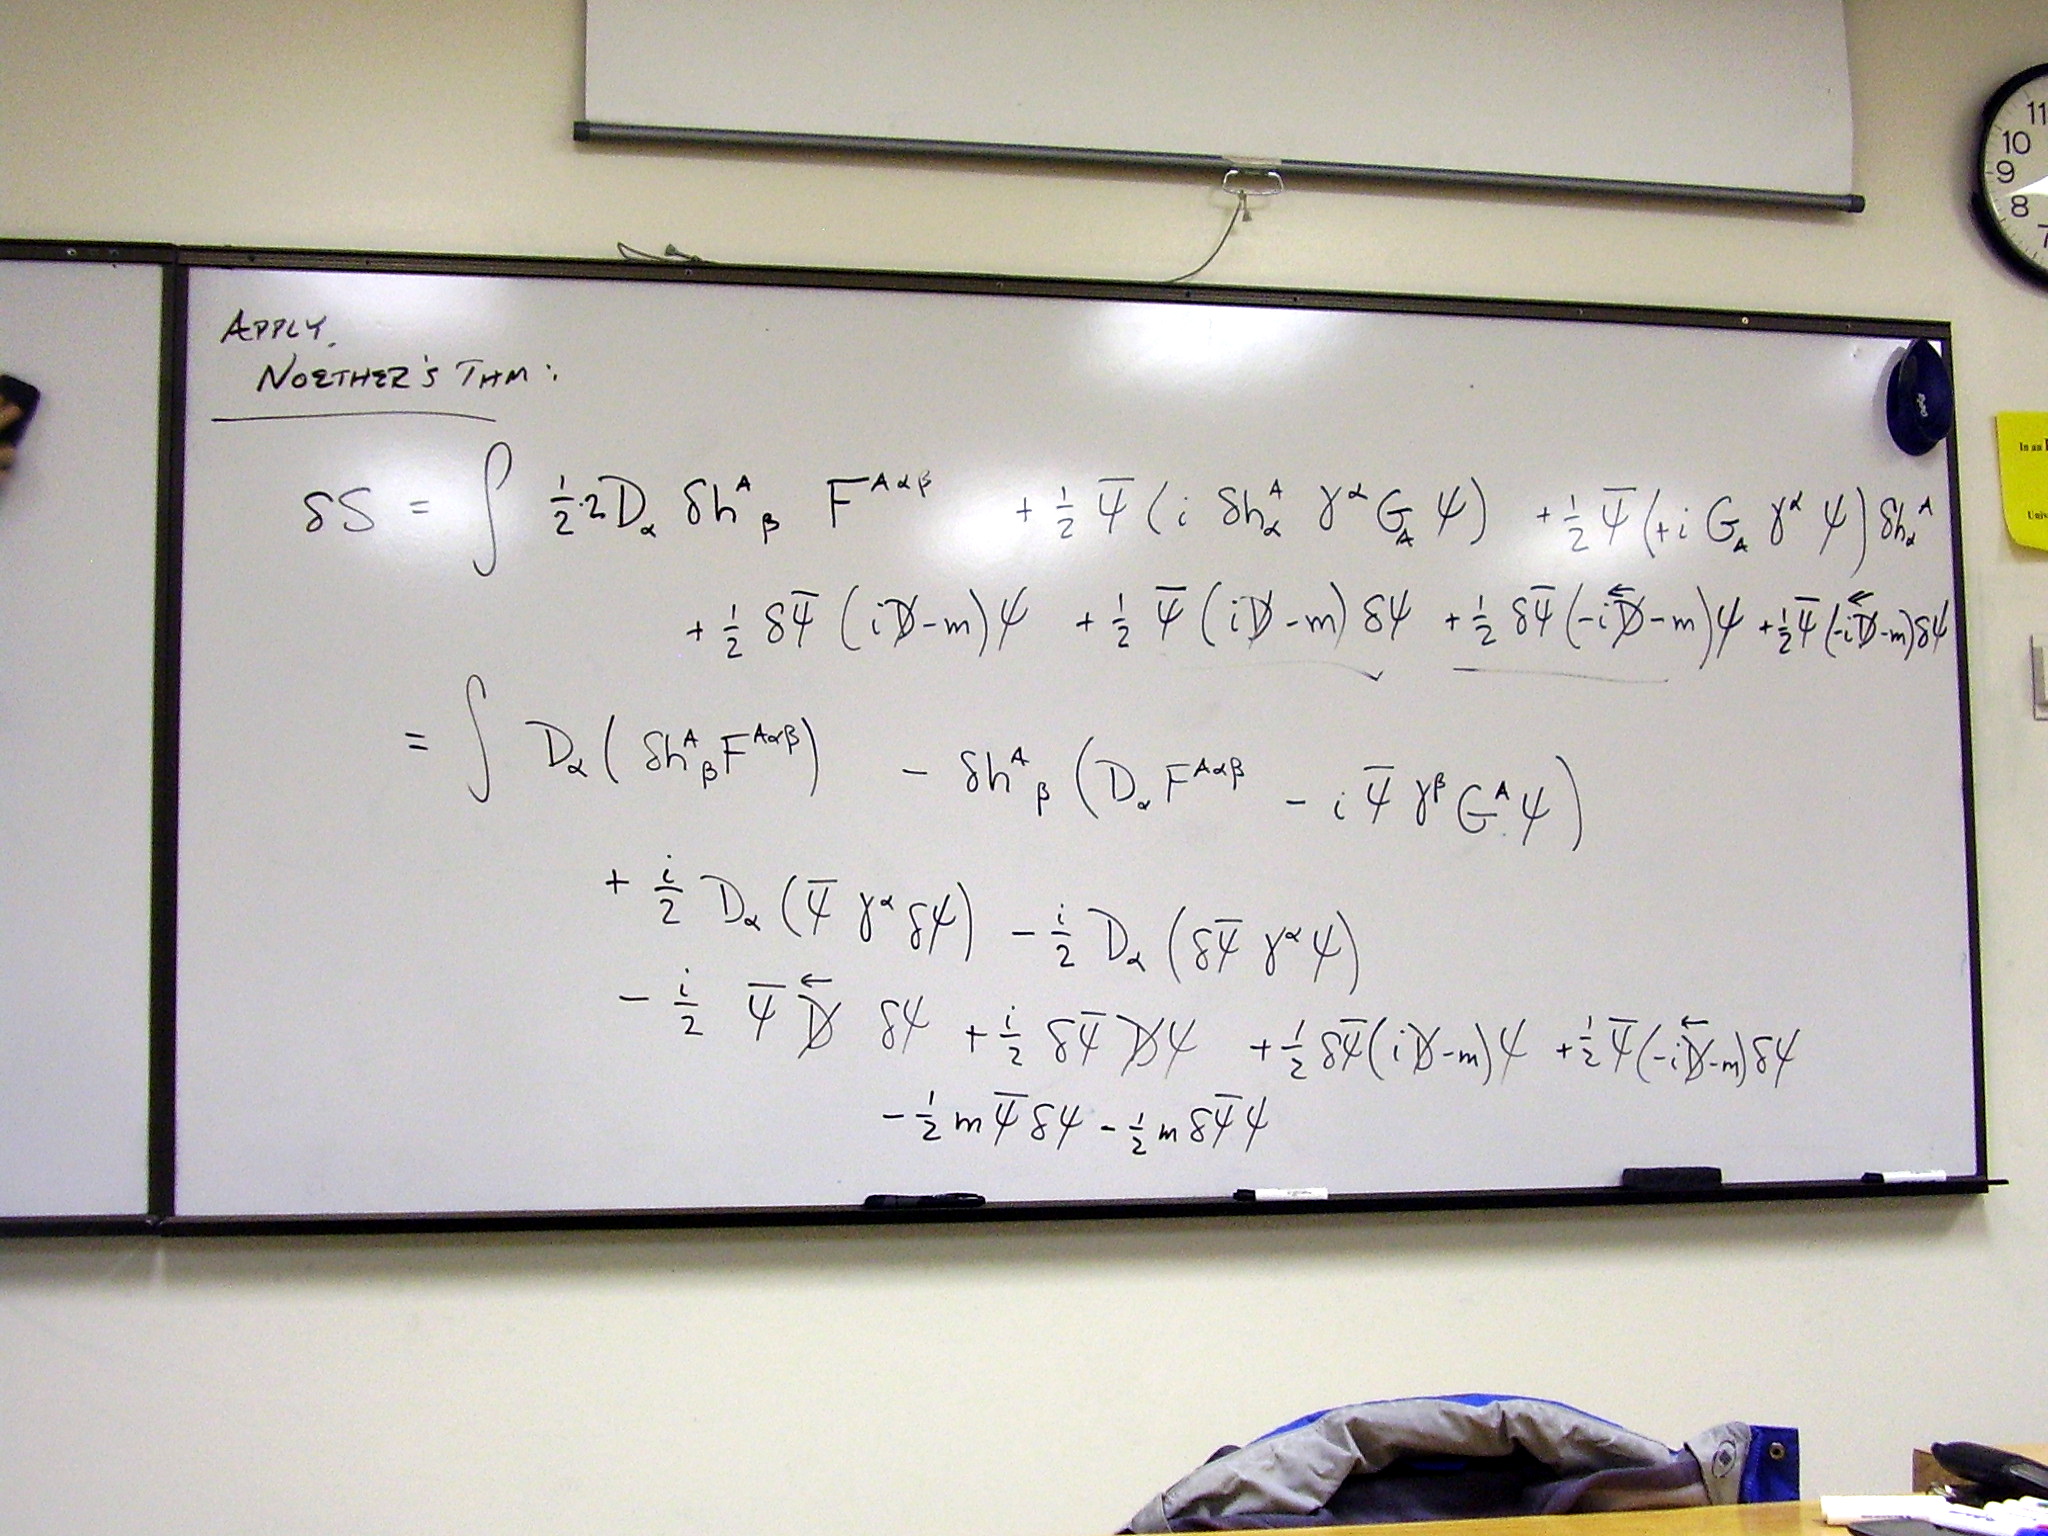 11
10
9
8
7
APPLY
NOETHER'S THM:
δS = ∫ ½·2 D_α δh^A_β F^{Aαβ} + ½ ψ̄ (i δh^A_α γ^α G_A ψ) + ½ ψ̄ (+i G_A γ^α ψ) δh_α^A
+ ½ δψ̄ (iD̸ - m)ψ + ½ ψ̄ (iD̸ - m) δψ + ½ δψ̄ (-i\overleftarrow{D̸} - m)ψ + ½ ψ̄ (-i\overleftarrow{D̸} - m) δψ
= ∫ D_α ( δh^A_β F^{Aαβ} ) - δh^A_β ( D_α F^{Aαβ} - i ψ̄ γ^β G^A ψ )
+ i/2 D_α (ψ̄ γ^α δψ) - i/2 D_α (δψ̄ γ^α ψ)
- i/2 ψ̄ \overleftarrow{D̸} δψ + i/2 δψ̄ D̸ψ + ½ δψ̄ (iD̸ - m)ψ + ½ ψ̄ (-i\overleftarrow{D̸} - m) δψ
- ½ m ψ̄ δψ - ½ m δψ̄ ψ
In an
Univ